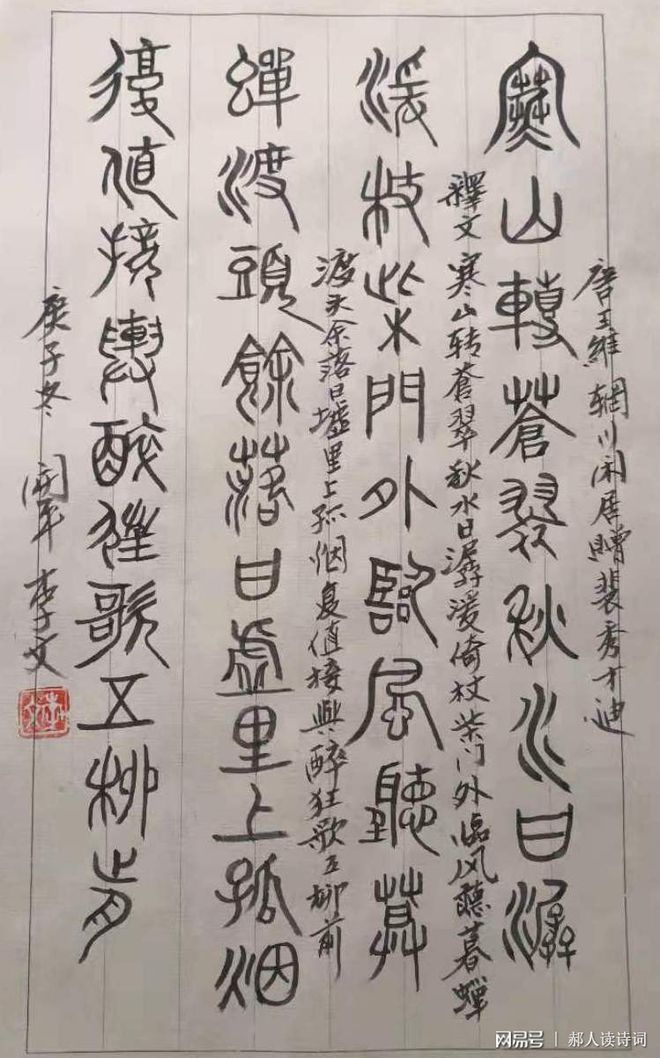 唐王維辋川闲居贈裴秀才迪
寒山轉蒼翠秋水日潺
釋文寒山转蒼翠秋水日潺湲倚杖柴门外临风聽暮蟬
湲杖柴門外臨風聽暮
渡头余落日墟里上孤烟复值接輿醉狂歌五柳前
蟬渡頭餘落日虛里上孤烟
復值接輿醉狂歌五柳前
庚子冬 李文
网易号 | 郝人读诗词